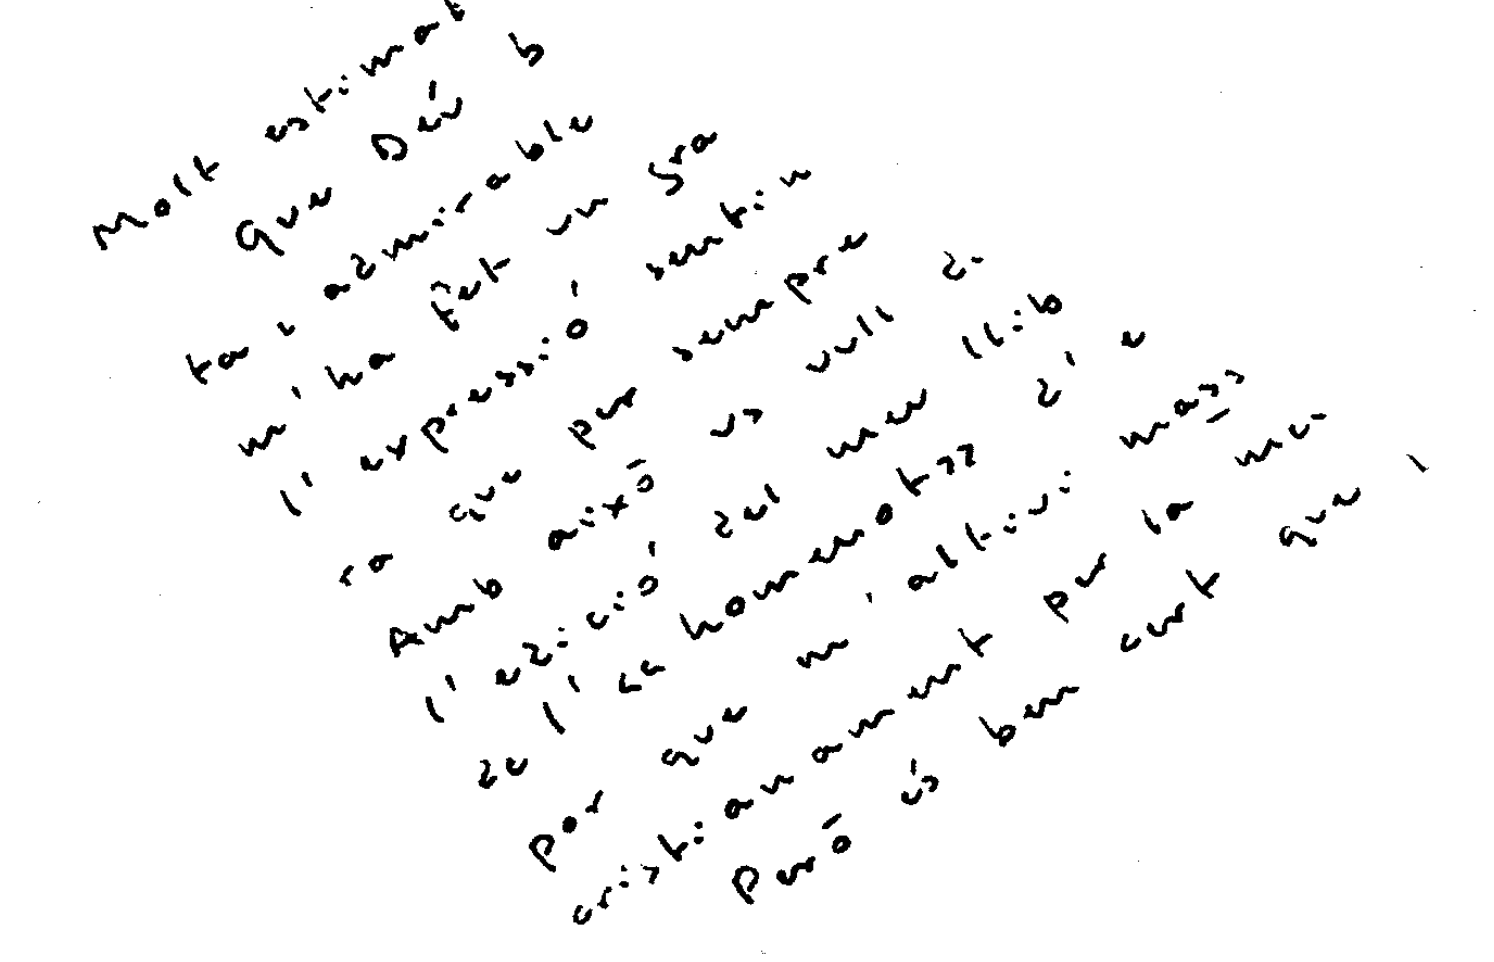 Molt estimat
Que Déu b
ta i admirable
m'ha fet un gra
l'expressió sentin
ra que per sempre
Amb això us vull di
l'edició del meu llib
de d'e
por que m' mass
cristianament per la
Però és ben cert que